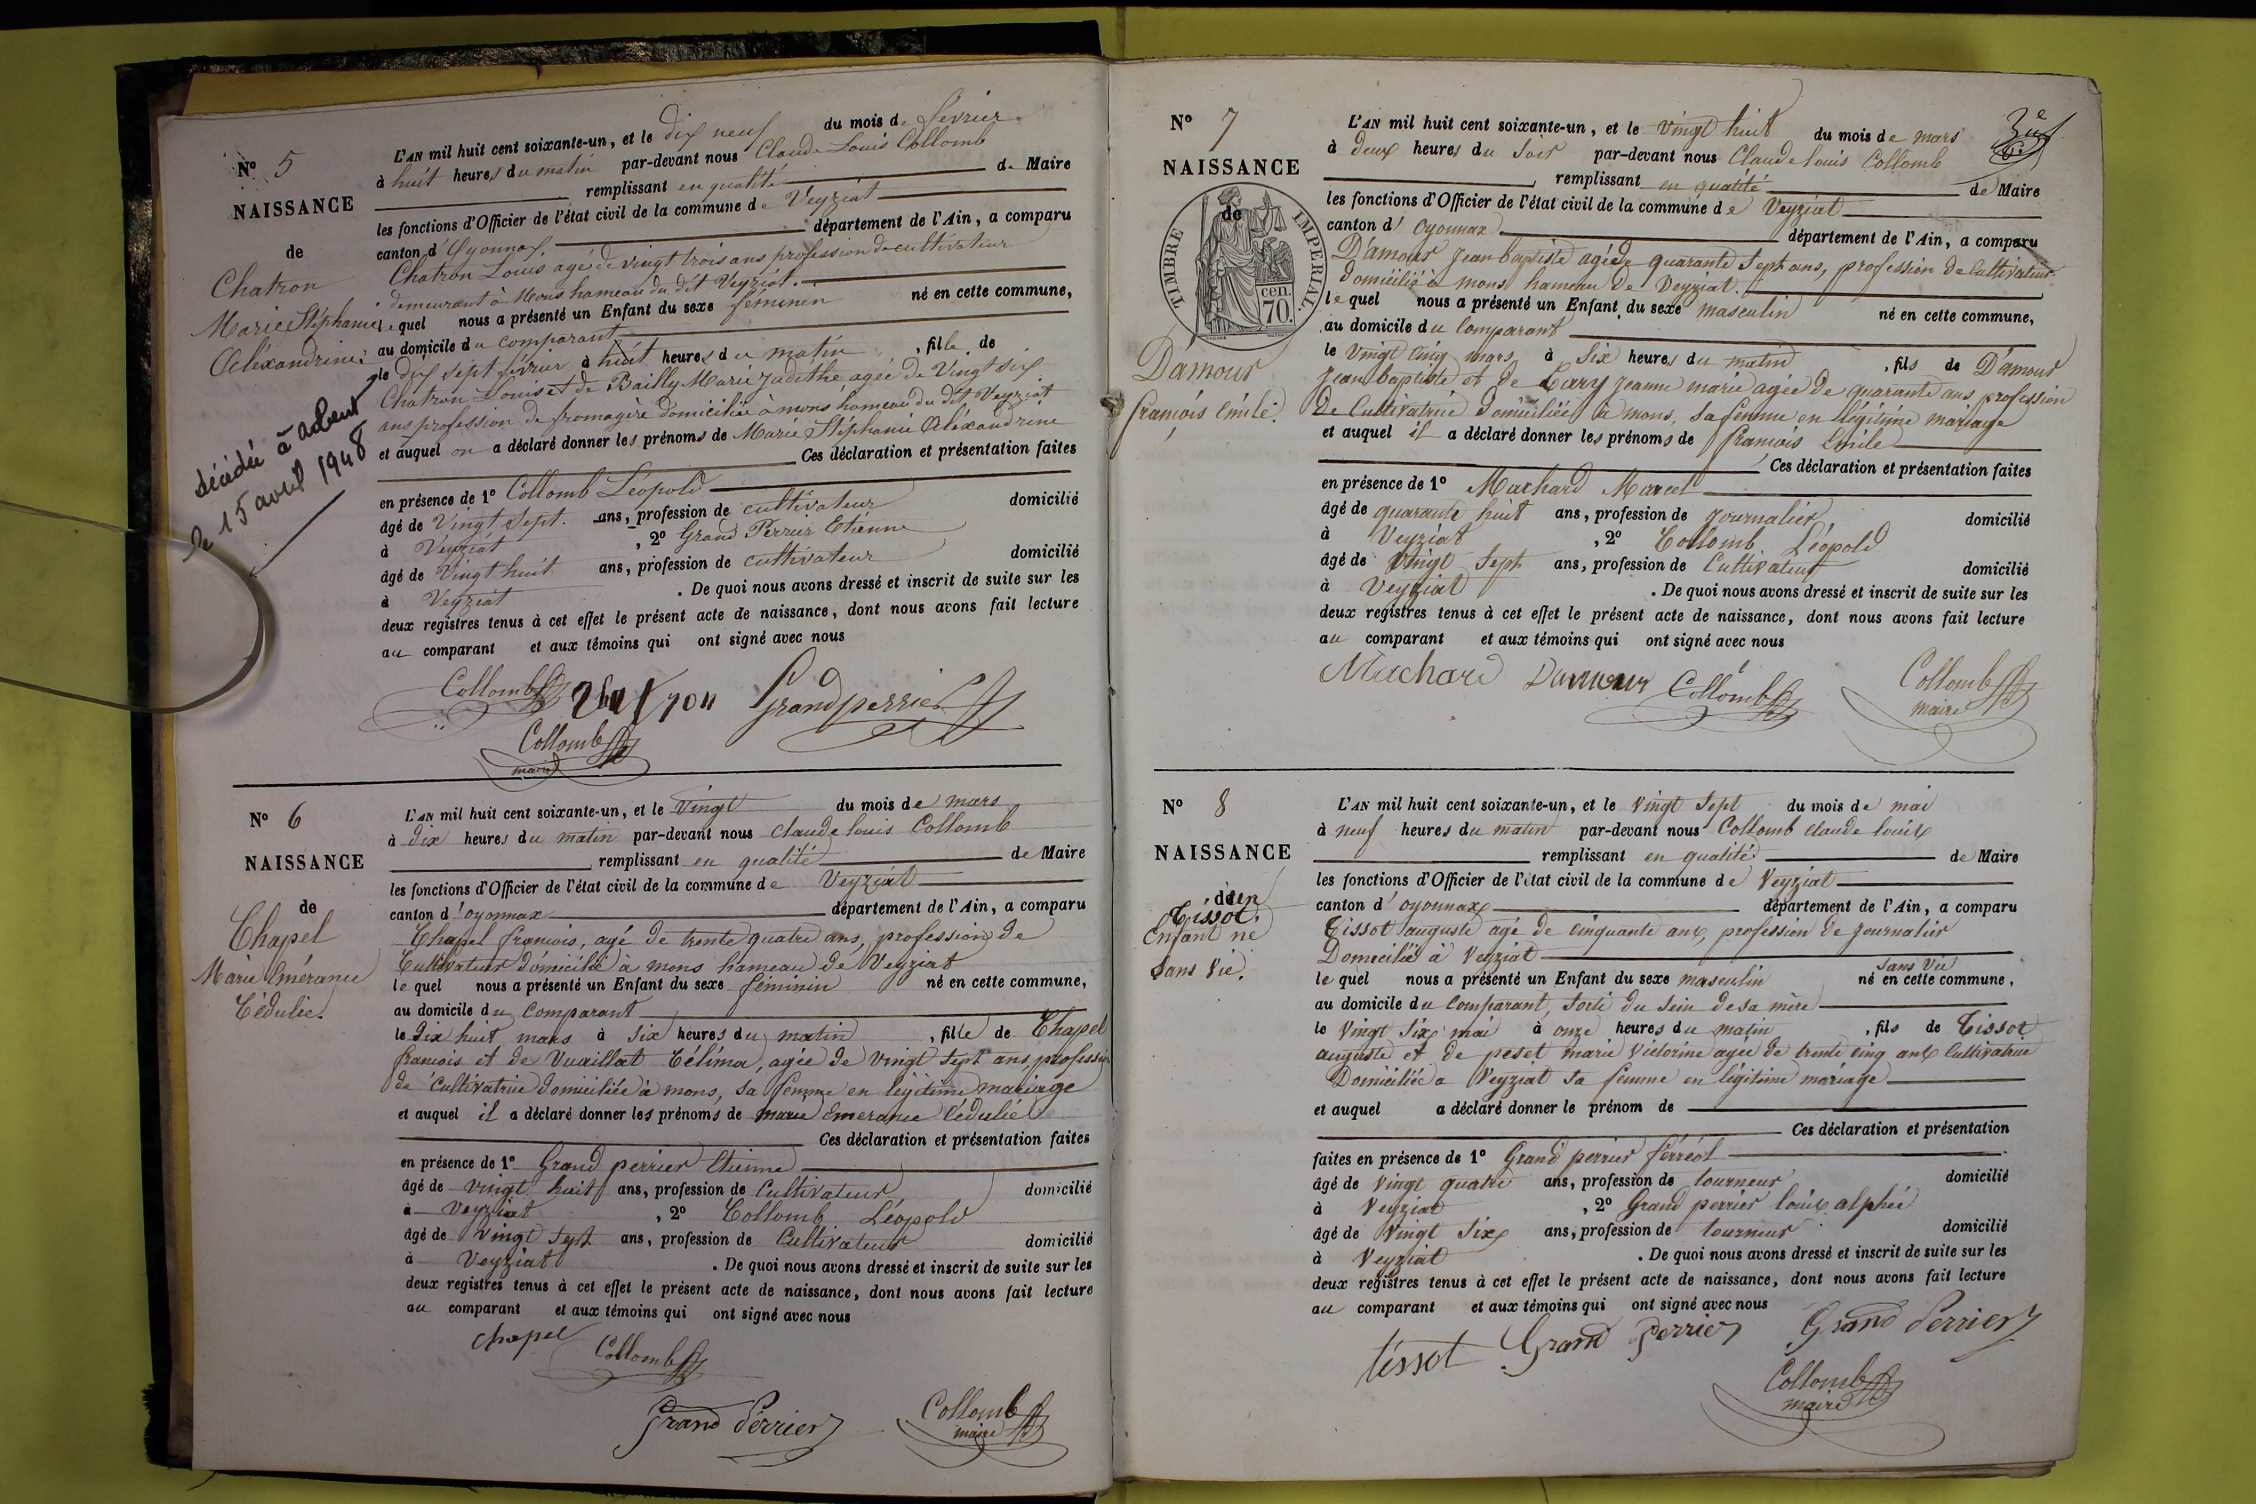 N° 5
NAISSANCE
de
Chatron
Marie Stéphanie
Alixandrine.
décédée à arbent
le 15 avril 1948
L'AN mil huit cent soixante-un, et le dix neuf du mois de février
à huit heures du matin par-devant nous Claude Louis Collomb
remplissant en qualité de Maire
les fonctions d'Officier de l'état civil de la commune de Veyziat
canton d'Oyonnax département de l'Ain, a comparu
Chatron Louis agé de vingt trois ans profession de cultivateur
demeurant à Mons hameau du dit Veyziat.
le quel nous a présenté un Enfant du sexe féminin né en cette commune,
au domicile du comparant
le dix sept février à huit heures du matin, fille de
Chatron Louis et de Bailly Marie Judithe agée de Vingt six
ans profession de fromagère domiciliée à mons hameau du dit Veyziat
et auquel on a déclaré donner les prénoms de Marie Stéphanie Aléxandrine
Ces déclaration et présentation faites
en présence de 1° Collomb Léopold
âgé de Vingt sept. ans, profession de cultivateur domicilié
à Veyziat, 2° Grand Perrier Etienne
âgé de Vingt huit ans, profession de cultivateur domicilié
à Veyziat. De quoi nous avons dressé et inscrit de suite sur les
deux registres tenus à cet effet le présent acte de naissance, dont nous avons fait lecture
au comparant et aux témoins qui ont signé avec nous
Collomb Grandperrier
Collomb
maire
N° 6
NAISSANCE
de
Chapel
Marie Emérance
Cédulie.
L'AN mil huit cent soixante-un, et le Vingt du mois de mars
à dix heures du matin par-devant nous claude louis Collomb
remplissant en qualité de Maire
les fonctions d'Officier de l'état civil de la commune de Veyziat
canton d'oyonnax département de l'Ain, a comparu
Chapel françois, agé de trente quatre ans, profession de
Cultivateur domicilié à mons hameau de Veyziat
le quel nous a présenté un Enfant du sexe féminin né en cette commune,
au domicile du Comparant
le dix huit mars à six heures du matin, fille de Chapel
françois et de Vuaillat Célima, agée de vingt sept ans, profession
de Cultivatrice domiciliée à mons, sa femme en légitime mariage
et auquel il a déclaré donner les prénoms de marie Emerance Cédulie
Ces déclaration et présentation faites
en présence de 1° Grand perrier Etienne
âgé de vingt huit ans, profession de Cultivateur domicilié
à Veyziat, 2° Collomb Léopold
âgé de Vingt sept ans, profession de Cultivateur domicilié
à Veyziat. De quoi nous avons dressé et inscrit de suite sur les
deux registres tenus à cet effet le présent acte de naissance, dont nous avons fait lecture
au comparant et aux témoins qui ont signé avec nous
chapel Collomb
Grand Perrier Collomb
maire
3e
N° 7
NAISSANCE
de
TIMBRE IMPERIAL
70 cen.
Damour
françois Emile.
L'AN mil huit cent soixante-un, et le Vingt huit du mois de mars
à deux heures du soir par-devant nous Claude louis Collomb
remplissant en qualité de Maire
les fonctions d'Officier de l'état civil de la commune de Veyziat
canton d'oyonnax département de l'Ain, a comparu
D'amour Jean baptiste agé de quarante sept ans, profession de Cultivateur
domicilié à mons hameau de Veyziat.
le quel nous a présenté un Enfant du sexe masculin né en cette commune,
au domicile du Comparant
le Vingt Cinq mars à six heures du matin, fils de D'amour
Jean baptiste et de Cary Jeanne marie agée de quarante ans profession
de Cultivatrice domiciliée à mons, sa femme en légitime mariage
et auquel il a déclaré donner les prénoms de françois Emile
Ces déclaration et présentation faites
en présence de 1° Machard Marcel
âgé de quarante huit ans, profession de Journalier domicilié
à Veyziat, 2° Collomb Léopold
âgé de Vingt sept ans, profession de Cultivateur domicilié
à Veyziat. De quoi nous avons dressé et inscrit de suite sur les
deux registres tenus à cet effet le présent acte de naissance, dont nous avons fait lecture
au comparant et aux témoins qui ont signé avec nous
Machard Damour Collomb Collomb
maire
N° 8
NAISSANCE
d'un
Tissot.
Enfant né
sans vie.
L'AN mil huit cent soixante-un, et le Vingt sept du mois de mai
à neuf heures du matin par-devant nous Collomb claude louis
remplissant en qualité de Maire
les fonctions d'Officier de l'état civil de la commune de Veyziat
canton d'oyonnax département de l'Ain, a comparu
Tissot auguste agé de cinquante ans, profession de journalier
Domicilié à Veyziat
sans Vie
le quel nous a présenté un Enfant du sexe masculin né en cette commune,
au domicile du Comparant, sorti du sein de sa mère
le Vingt six mai à onze heures du matin, fils de Tissot
auguste et de peset marie Victorine agée de trente cinq ans Cultivatrice
Domiciliée a Veyziat sa femme en légitime mariage
et auquel a déclaré donner le prénom de
Ces déclaration et présentation
faites en présence de 1° Grand perrier férréol
âgé de vingt quatre ans, profession de tourneur domicilié
à Veyziat, 2° Grand perrier louis alphée
âgé de Vingt six ans, profession de tourneur domicilié
à Veyziat. De quoi nous avons dressé et inscrit de suite sur les
deux registres tenus à cet effet le présent acte de naissance, dont nous avons fait lecture
au comparant et aux témoins qui ont signé avec nous
tissot Grand Perrier Grand Perrier
Collomb
maire